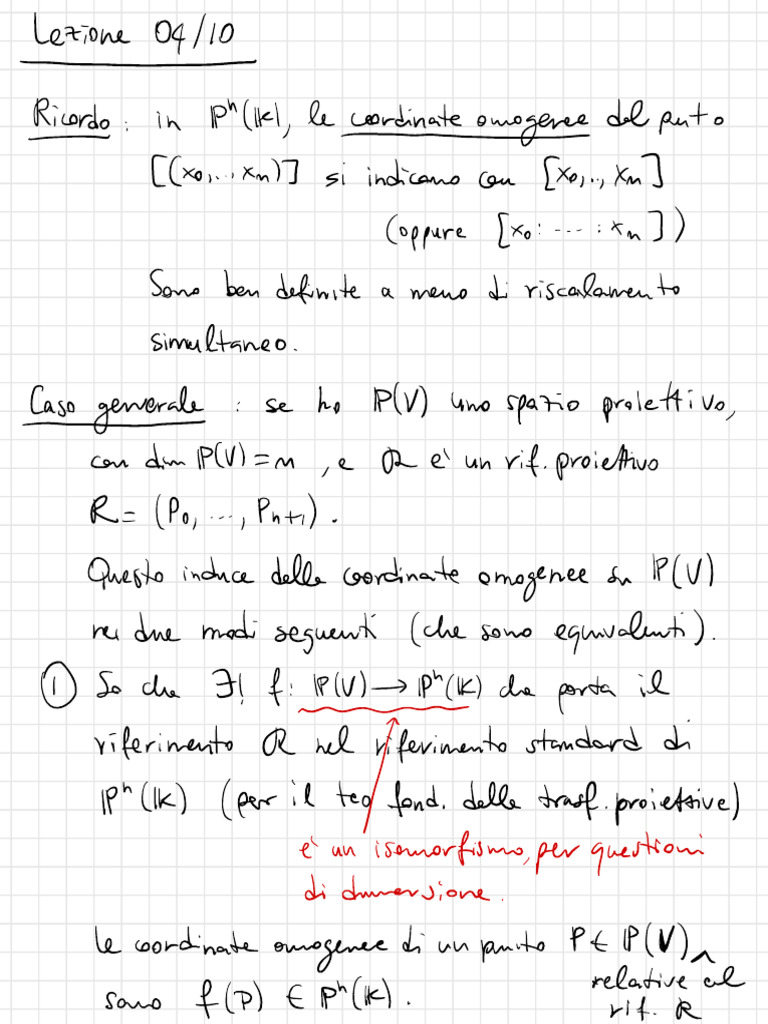 Lezione 04/10
Ricordo: in ℙⁿ(𝕂), le coordinate omogenee del punto
[(x₀,...xₙ)] si indicano con [x₀,.., xₙ]
(oppure [x₀: ---- : xₙ])
Sono ben definite a meno di riscalamento
simultaneo.
Caso generale: se ho ℙ(V) uno spazio proiettivo,
con dim ℙ(V)=n, e R è un rif. proiettivo
R= (P₀, ..., Pₙ₊₁).
Questo induce delle coordinate omogenee su ℙ(V)
nei due modi seguenti (che sono equivalenti).
① So che ∃! f: ℙ(V)→ℙⁿ(𝕂) che porta il
riferimento R nel riferimento standard di
ℙⁿ(𝕂) (per il teo fond. delle trasf. proiettive)
è un isomorfismo, per questioni
di dimensione.
le coordinate omogenee di un punto P∈ ℙ(V) ^
relative al
rif. R
sono f(P) ∈ ℙⁿ(𝕂).